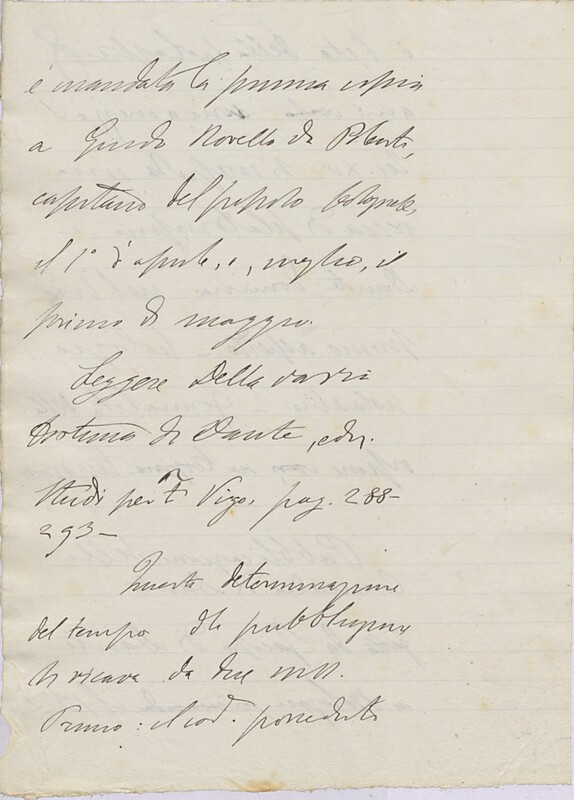 è mandata la prima copia
a Guido Novello da Polenta,
capitano del popolo bolognese,
il 1° d'aprile, o, meglio, il
primo di maggio.
Leggere Della varia
fortuna di Dante, ediz.
Studi per Vigo, pag. 288-
293-
Questa determinazione
del tempo della pubblicazione
si ricava da due mss.
Primo: il cod. posseduto